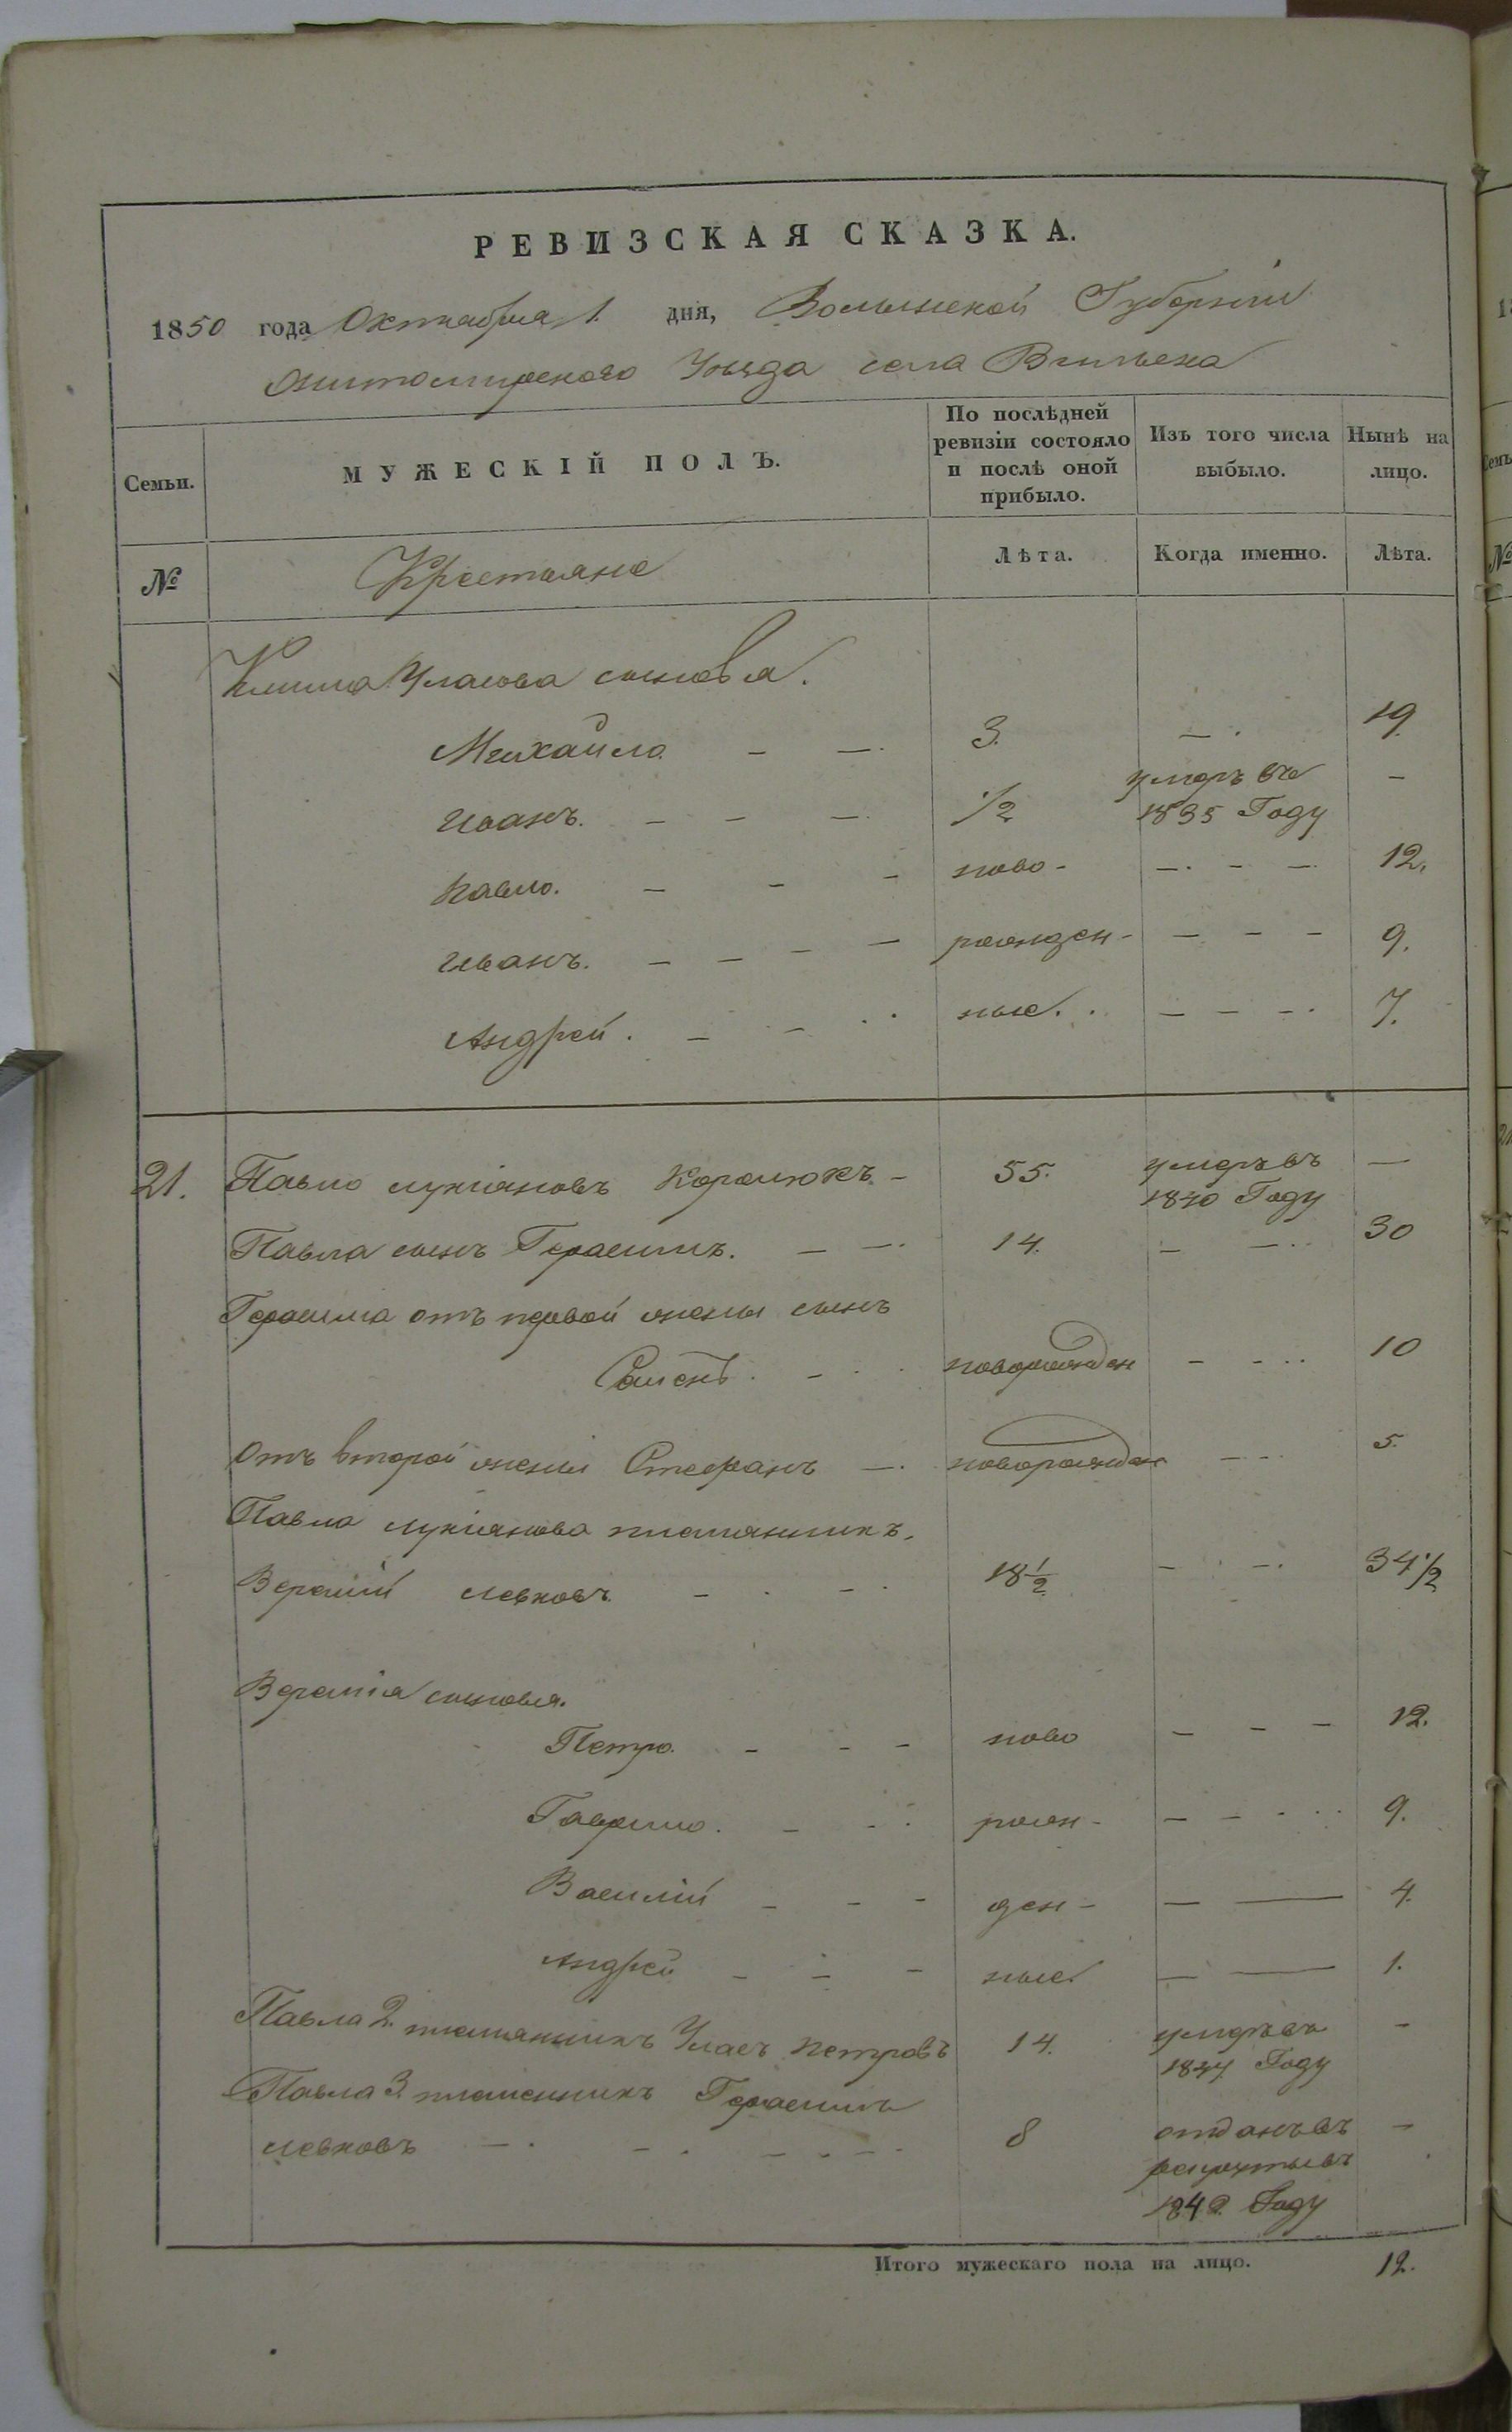 РЕВИЗСКАЯ СКАЗКА.
1850 года Октября 1. дня, Волынской Губерніи
Житомирского Уѣзда села Вильска
Семьи.
МУЖЕСКІЙ ПОЛЪ.
По послѣдней ревизіи состояло и послѣ оной прибыло.
Изъ того числа выбыло.
Нынѣ на лицо.
№
Крестьяне
Лѣта.
Когда именно.
Лѣта.
Клима Уласова сыновья.
Михайло. — —. 3. —. 19.
Иванъ. — — —. 1/2 умеръ въ 1835 Году —
Павло. — — — ново- —. — —. 12.
Иванъ. — — — — рожден- — — — 9.
Андрей. — — . . ные. . — — —. 7.
21. Павло Лукіяновъ Королюкъ. — 55. умеръ въ 1840 Году —
Павла сынъ Герасимъ. — —. 14. — —.. 30
Герасима отъ первой жены сынъ
Семенъ. — . . новорожден — — .. 10
Отъ второй жены Стефанъ —. новорожден — — . 5.
Павла Лукіянова племянникъ.
Веремій Левковъ. — . — . 18 1/2 — . —. 34 1/2
Веремія сыновья.
Петро. — — — ново — — — 12.
Гаврило. — — . рож- — — . . . 9.
Василій — — — ден- — — 4.
Андрей — — — ные. — — 1.
Павла 2. племянникъ Уласъ Петровъ 14. умеръ въ 1844 Году —
Павла 3. племенникъ Герасимъ
Левковъ — . — . — . — . 8 отданъ въ рекруты въ 1842. Году —
Итого мужескаго пола на лицо. 12.